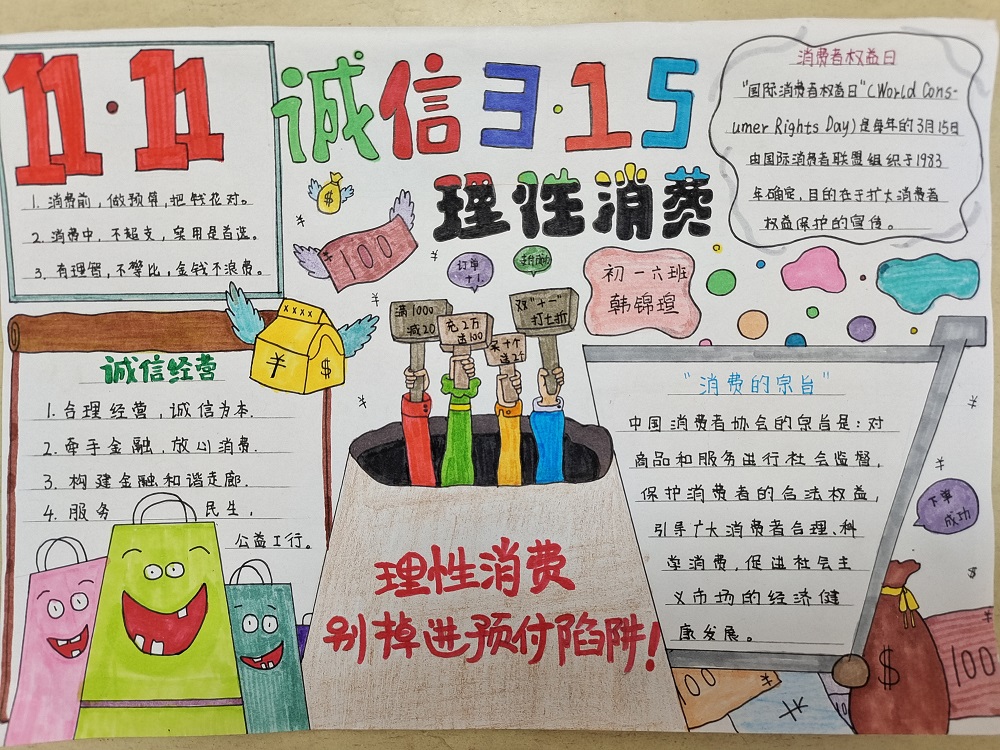 11·11
1. 消费前，做预算，把钱花对。
2. 消费中，不超支，实用是首选。
3. 有理智，不攀比，金钱不浪费。
诚信3·15
理性消费
消费者权益日
"国际消费者权益日"(World Cons-
umer Rights Day)是每年的3月15日
由国际消费者联盟组织于1983
年确定，目的在于扩大消费者
权益保护的宣传。
$
100
订单
+1
初一六班
韩锦瑄
满1000
减20
充2万
送100
买十个
送2个
双"十一"
打七折
¥
$
诚信经营
1. 合理经营，诚信为本.
2. 牵手金融，放心消费.
3. 构建金融和谐走廊.
4. 服务 民生，
公益工行。
"消费的宗旨"
中国消费者协会的宗旨是：对
商品和服务进行社会监督，
保护消费者的合法权益，
引导广大消费者合理、科
学消费，促进社会主
义市场的经济健
康发展。
下单
成功
理性消费
别掉进预付陷阱！
$
100
00
¥